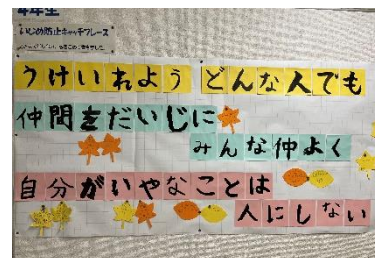 4年生
いじめ防止キャッチフレーズ
うけいれよう どんな人でも
仲間をだいじに
みんな仲よく
自分がいやなことは
人にしない